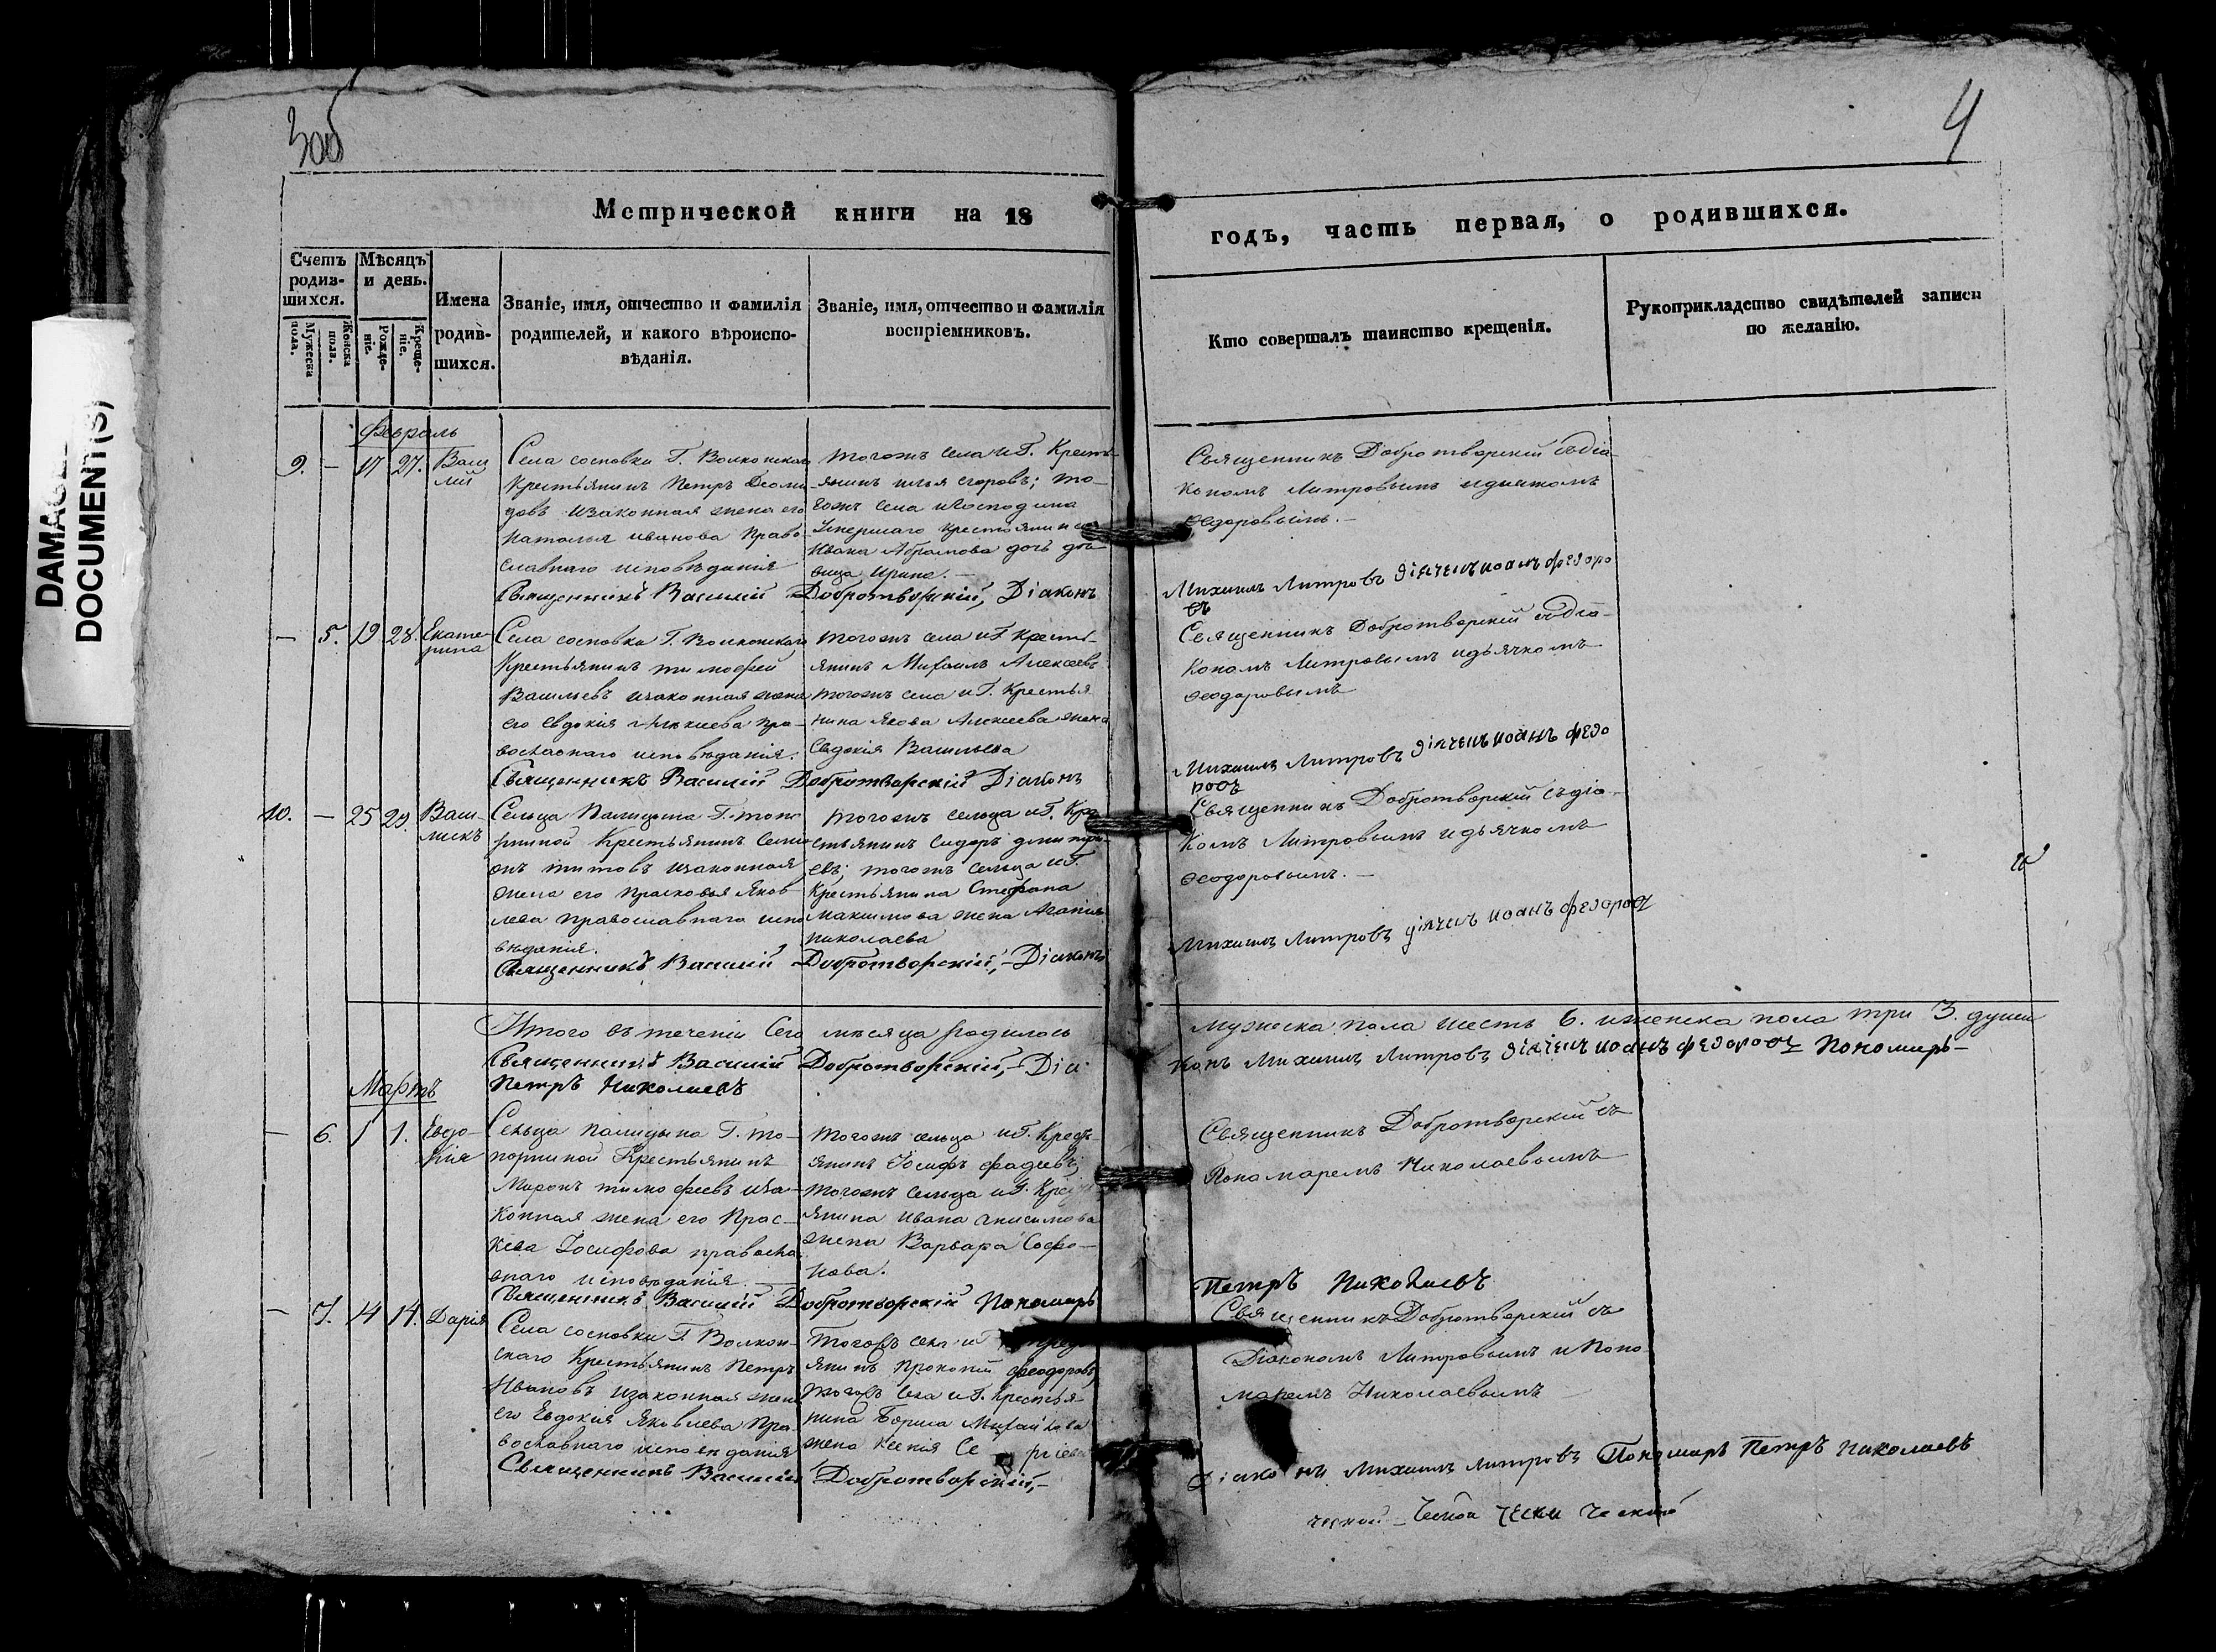 3об
4
DAMAGED
DOCUMENT(S)
Метрической книги на 18
годъ, часть первая, о родившихся.
Счетъ родив-шихся.
Мужеска пола.
Женска пола.
Мѣсяцъ и день.
Рожде-ніе.
Креще-ніе.
Имена родив-шихся.
Званіе, имя, отчество и фамилія
родителей, и какого вѣроиспо-
вѣданія.
Званіе, имя, отчество и фамилія
воспріемниковъ.
Кто совершалъ таинство крещенія.
Рукоприкладство свидѣтелей записи
по желанію.
Февраль
9. — 17 27. Васи
лій
Села сосновки Г. Волконскаго
Крестьянинъ Петръ Деоми
довъ изаконная жена его
Наталья иванова Право-
славнаго исповѣданія
тогожъ села иГ. Кресть-
янинъ илья егоровъ; то-
гожъ села иГосподина
Умершаго крестьянина
Ивана Абрамова дочь дѣ-
вица Ирина. —
Священникъ Добротворскій съдіа-
кономъ Митровымъ идьячкомъ
Ѳедоровымъ. —
Священникъ Василій Добротворскій, Діаконъ
Михаилъ Митровъ дьячекъ иоанъ федоро
въ
— 5. 19 28. Екате-
рина
Села сосновки Г. Волконскаго
Крестьянинъ тимофей
Васильевъ изаконная жена
его евдокія Алексеева пра-
вославнаго исповѣданія.
тогожъ села иГ кресть-
янинъ Михаилъ Алексеевъ
тогожъ села иГ. Крестья
нина Якова Алексеева жена
Евдокія Васильева
Священникъ Добротворскій съдіа-
кономъ Митровымъ идьячкомъ
Ѳеодоровымъ
Священникъ Василій Добротворскій Діаконъ
Михаилъ Митровъ дьячекъ иоанъ федо
ровъ
10. — 25 29. Васи-
лискъ
Сельца Палицына Г. топо
рниной Крестьянинъ Семи
онъ титовъ изаконная
жена его прасковья Яков
лева православнаго испо
вѣданія.
тогожъ сельца иГ. Кре
стьянинъ Сидоръ дмитри-
евъ; тогожъ сельца иГ.
Крестьянина Стефана
Максимова жена Агапія
николаева
Священникъ Добротворскій съдіа-
комъ Митровымъ идьячкомъ
Ѳеодоровымъ. —
Священникъ Василій Добротворскій, — Діаконъ
Михаилъ Митровъ дьячекъ иоанъ федоровъ
Итого въ теченіи Сего мѣсяца родилось
мужеска пола шесть 6. иженска пола три 3. души
Священникъ Василій Добротворскій, — Діа
конъ Михаилъ Митровъ дьячекъ иоанъ федоровъ Пономарь —
Петръ Николаевъ
Мартъ
— 6. 1 1. Евдо-
кія
Сельца палицына Г. то-
порниной Крестьянинъ
Миронъ тимофеевъ иза-
конная жена его Прас-
кева Іосифова правосла
внаго исповѣданія. —
тогожъ сельца иГ. Кресть-
янинъ Іосифъ фадеевъ;
тогожъ сельца иГ. Кресть
янина ивана анисимова
жена Варвара Софо-
нова.
Священникъ Добротворскій съ
Пономаремъ Николаевымъ
Священникъ Василій Добротворскій Пономарь
Петръ Николаевъ
— 7. 14 14. Дарія
Села сосновки Г. Волкон-
скаго Крестьянинъ Петръ
Ивановъ изаконная жена
его Евдокія Яковлева Пра-
вославнаго исповѣданія
тогожъ села иГ
янинъ прокопій феодоровъ
тогожъ села иГ. крестья-
нина Бориса Михайлова
жена ксенія Се
Священникъ Добротворскій съ
Діакономъ Митровымъ иПоно
маремъ Николаевымъ
Священникъ Василій Добротворскій, —
Діаконъ Михаилъ Митровъ Пономарь Петръ Николаевъ